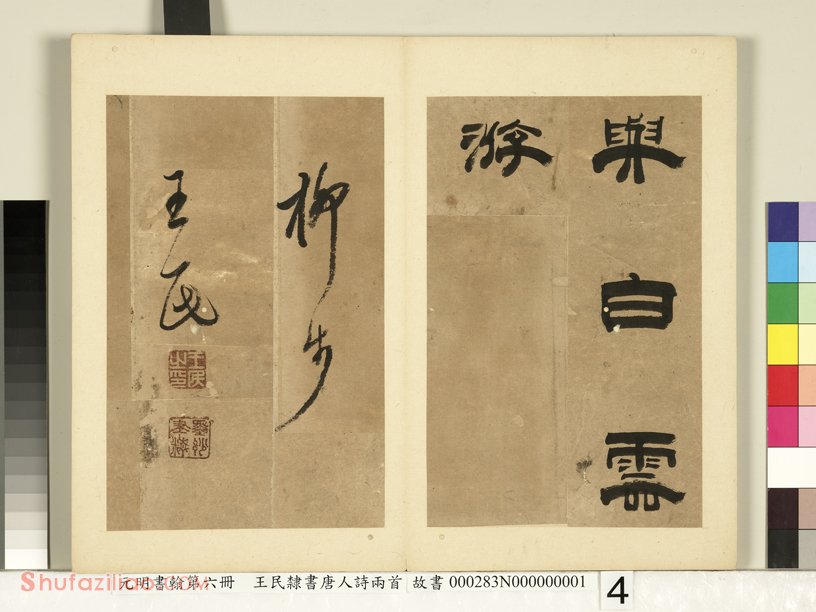 與白雲
游
柳步
王民
王民之印
元明書翰第六冊 王民隸書唐人詩兩首 故書 000283N000000001
4
Shufaziliao.com